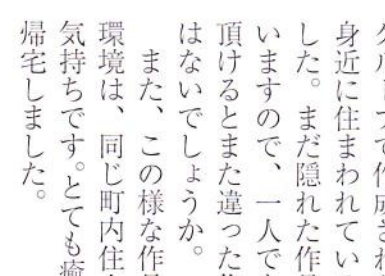 身近に住まわれてい
した。まだ隠れた作
いますので、一人で
頂けるとまた違った
はないでしょうか。
また、この様な作
環境は、同じ町内住
気持ちです。とても癒
帰宅しました。